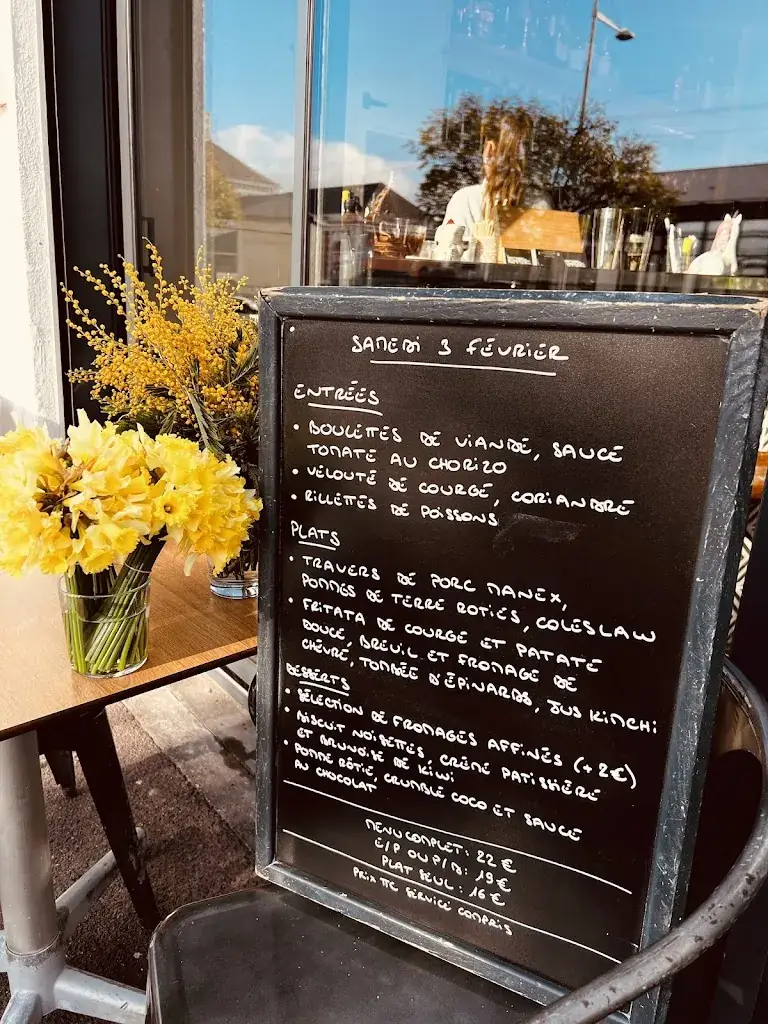 SAMEDI 3 FÉVRIER
ENTRÉES
• BOULETTES DE VIANDE, SAUCE
TOMATE AU CHORIZO
• VELOUTÉ DE COURGE, CORIANDRE
• RILLETTES DE POISSONS
PLATS
• TRAVERS DE PORC MANEX,
POMMES DE TERRE ROTIES, COLESLAW
• FRITATA DE COURGE ET PATATE
DOUCE, BREUIL ET FROMAGE DE
CHÈVRE, TOMBÉE D'ÉPINARDS, JUS KIMCHI
DESSERTS
• SÉLECTION DE FROMAGES AFFINÉS (+2€)
• BISCUIT NOISETTES, CRÈME PATISSIÈRE
ET BRUNOISE DE KIWI
• POMME RÔTIE, CRUMBLE COCO ET SAUCE
AU CHOCOLAT
MENU COMPLET : 22 €
E/P OU P/D : 19 €
PLAT SEUL : 16 €
PRIX TTC SERVICE COMPRIS